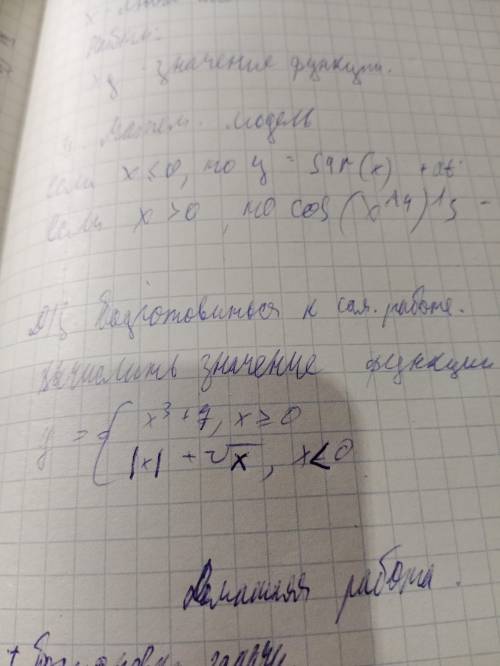 x
y - значение функции.
Матем. модель
если x ≤ 0, то y = Sqr(x) +
если x > 0, то cos(x^4)^5 -
Д/З Подготовиться к сам. работе.
Вычислить значение функции
y = { x³ + 7, x ≥ 0
|x| + √x, x < 0
Домашняя работа.